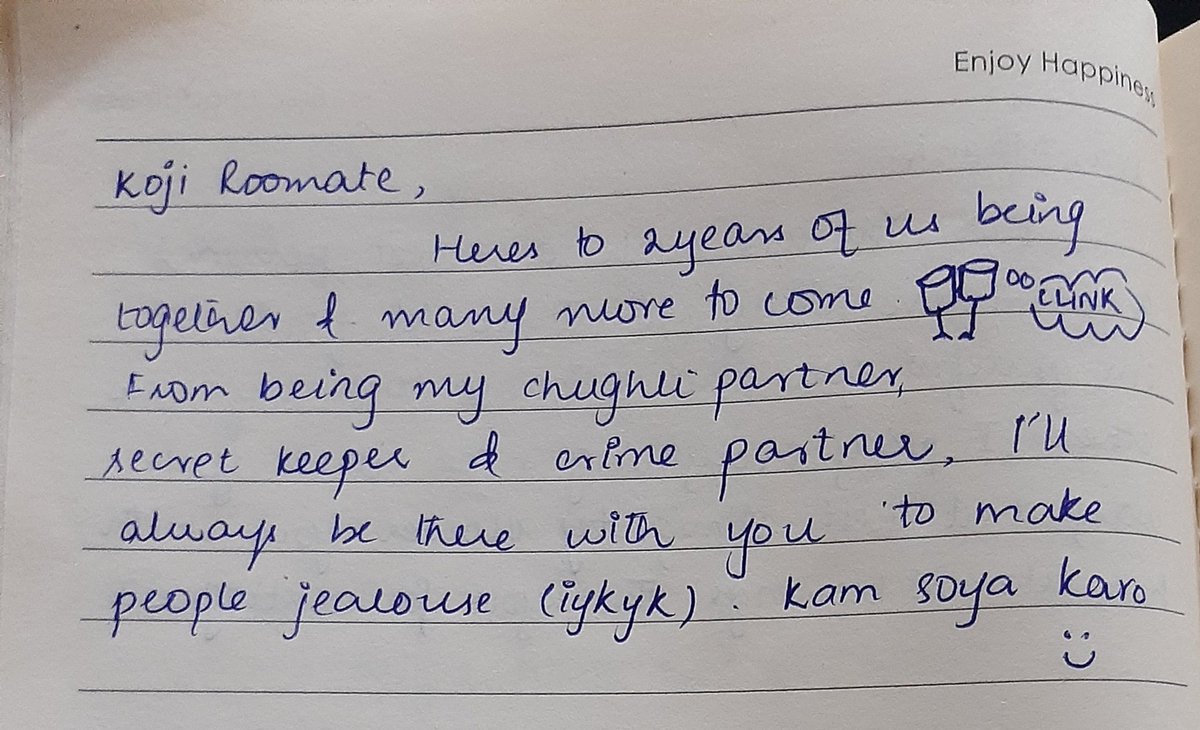 Enjoy Happiness
Koji Roomate,
Heres to 2years of us being
together & many more to come.
CLINK
From being my chughli partner,
secret keeper & crime partner, I'll
always be there with you to make
people jealouse (iykyk). Kam soya karo